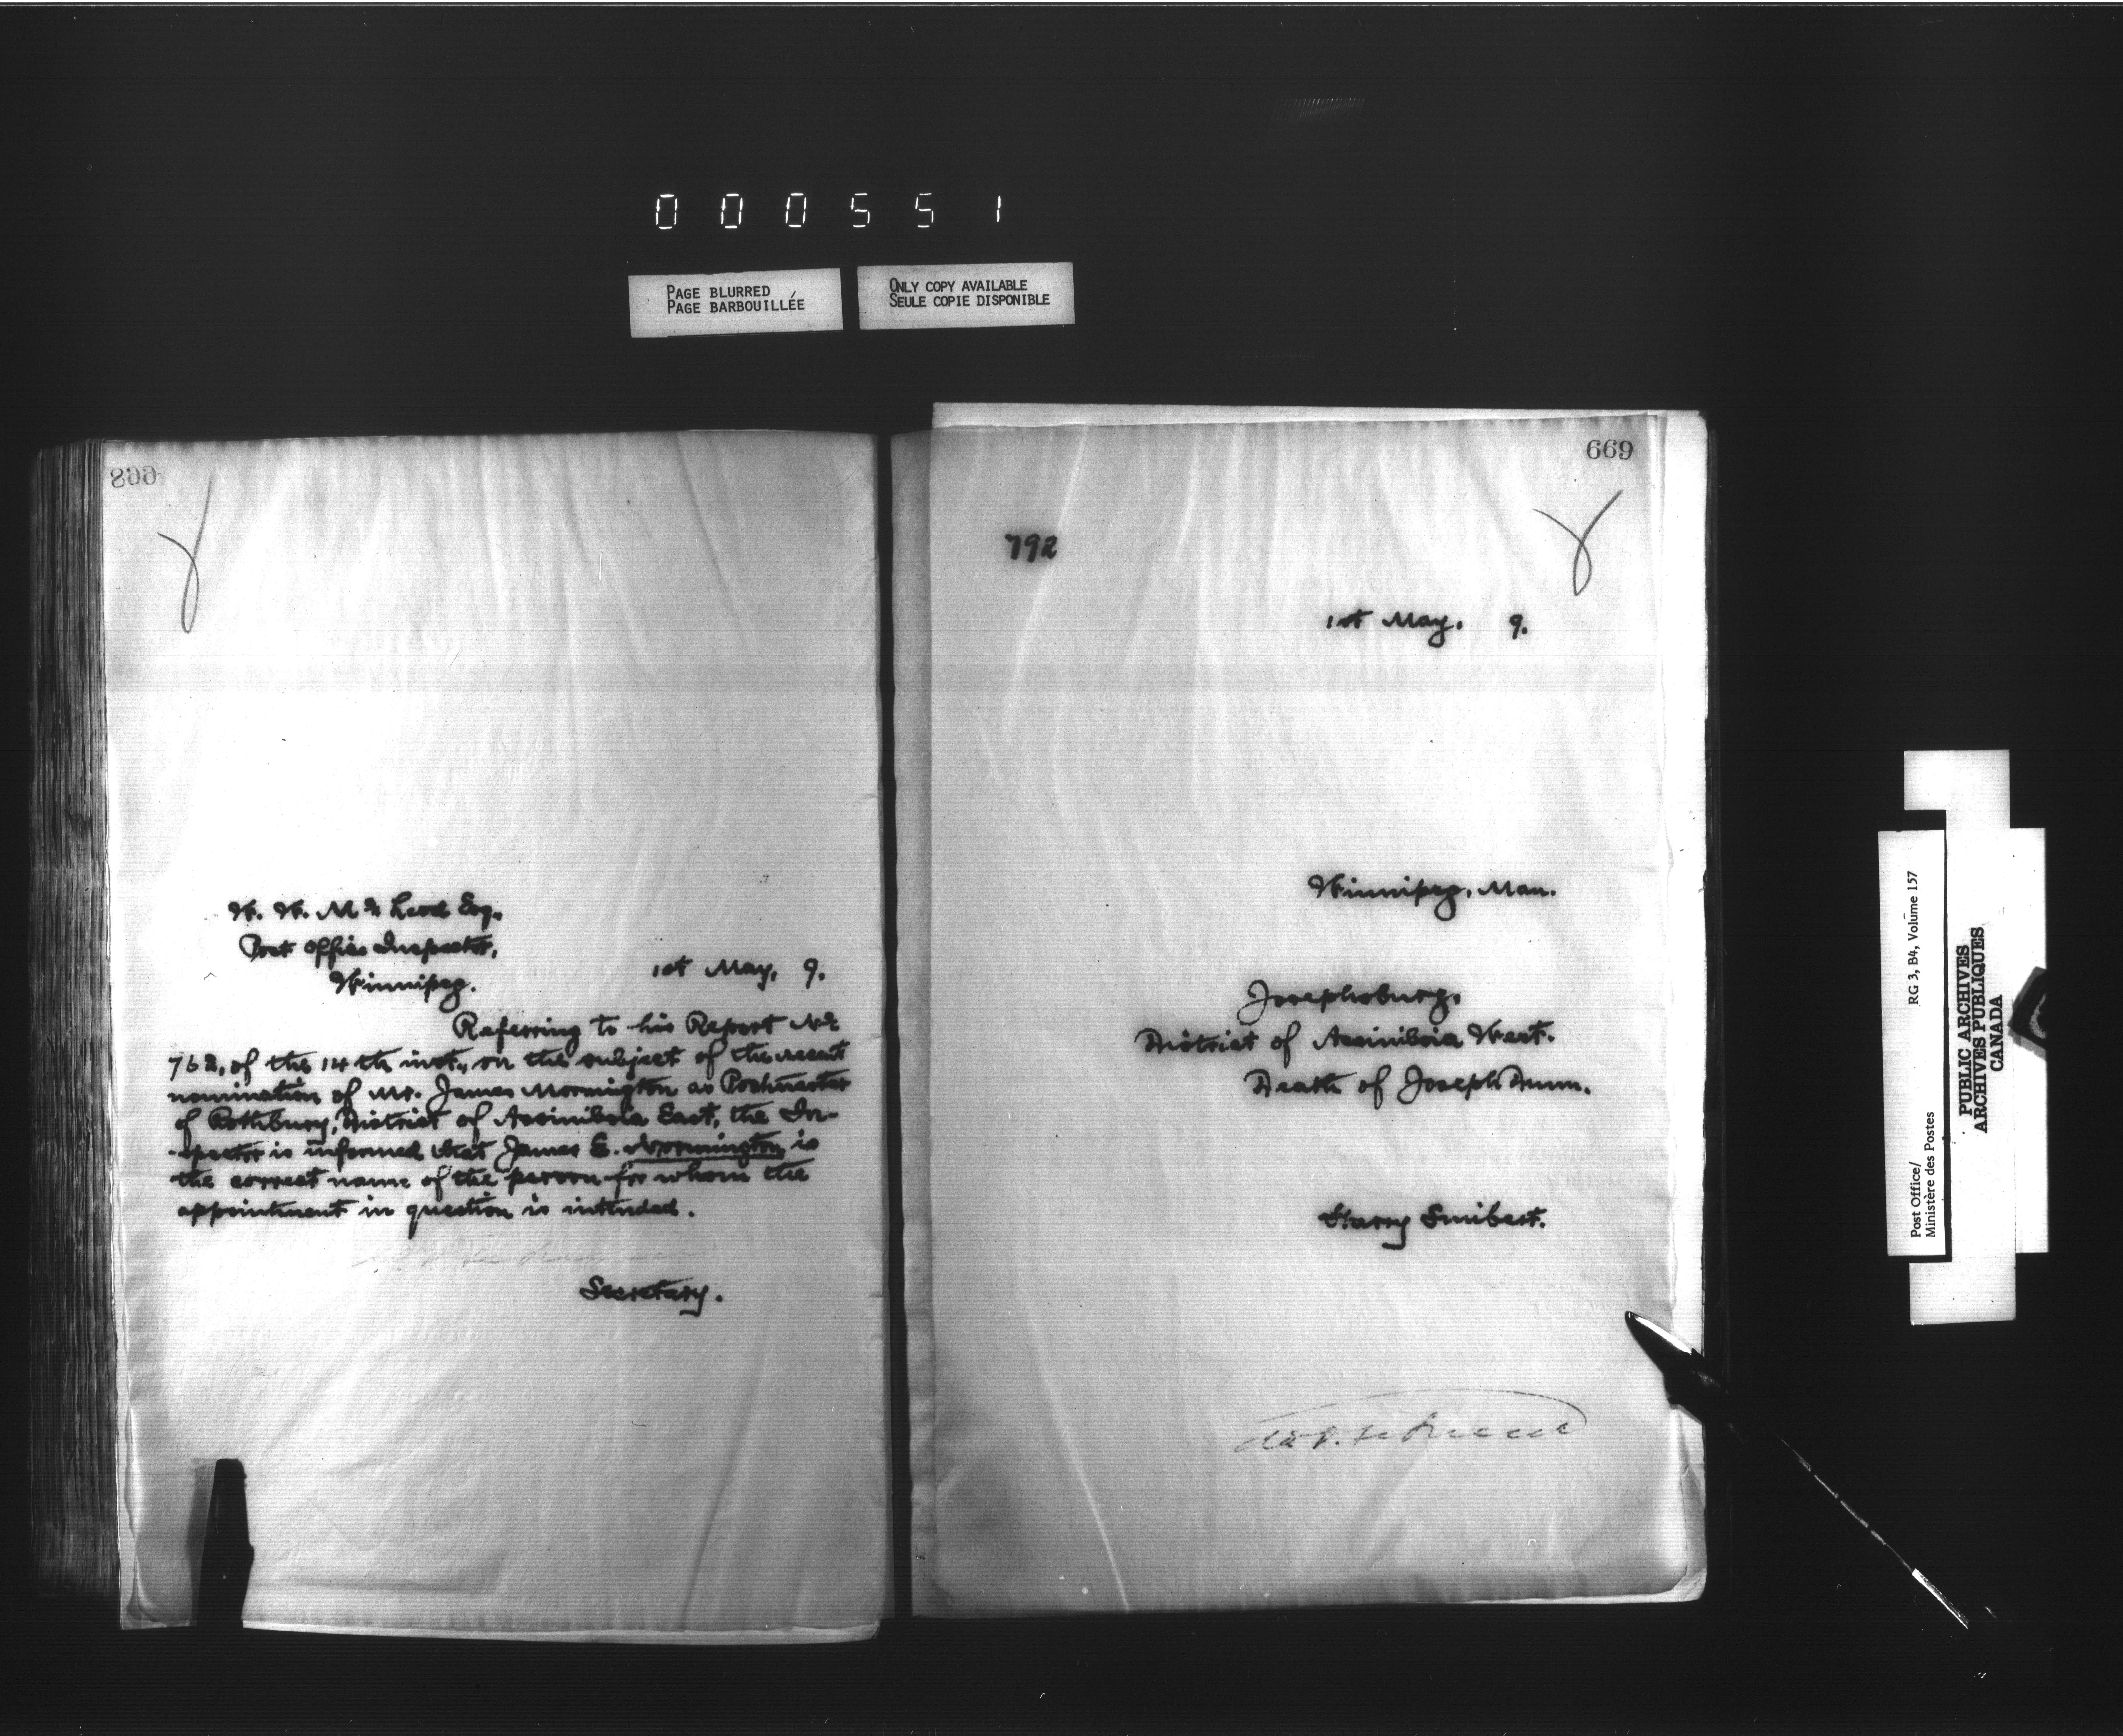 000551
PAGE BLURRED
PAGE BARBOUILLÉE
ONLY COPY AVAILABLE
SEULE COPIE DISPONIBLE
668
W. W. McLeod Esq.
Post Office Inspector,
Winnipeg.
1st May, 9.
Referring to his Report No
762, of the 14th inst., on the subject of the recent
nomination of Mr. James Mornington as Postmaster
of Rothbury, District of Assiniboia East, the In-
-spector is informed that James E. Wormington is
the correct name of the person for whom the
appointment in question is intended.
Secretary.
669
792
1st May. 9.
Winnipeg, Man.
Josephsburg,
District of Assiniboia West.
Death of Joseph Dunn.
Harry Smibert.
Post Office/
Ministère des Postes
RG 3, B4, Volume 157
PUBLIC ARCHIVES
ARCHIVES PUBLIQUES
CANADA